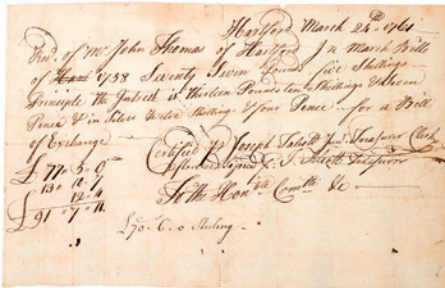 Hartford March 24th 1761
Recd. of Mr John Thomas of Hartford In March Bills
of 1758 Seventy Seven Pounds five Shillings
Principle the Intrest is thirteen Pounds ten Shillings & Seven
Pence & in Silver twelve Shillings & four Pence — for a Bill
of Exchange
Certified pr Joseph Talcott Junr. Treasurer Clerk
Talcott Treasurer
To the Honble Comtte &c
£77 " 5 " 0
13 " 10 " 7
12 " 4
£91 " 7 " 11
£70 - 6 - 0 Sterling